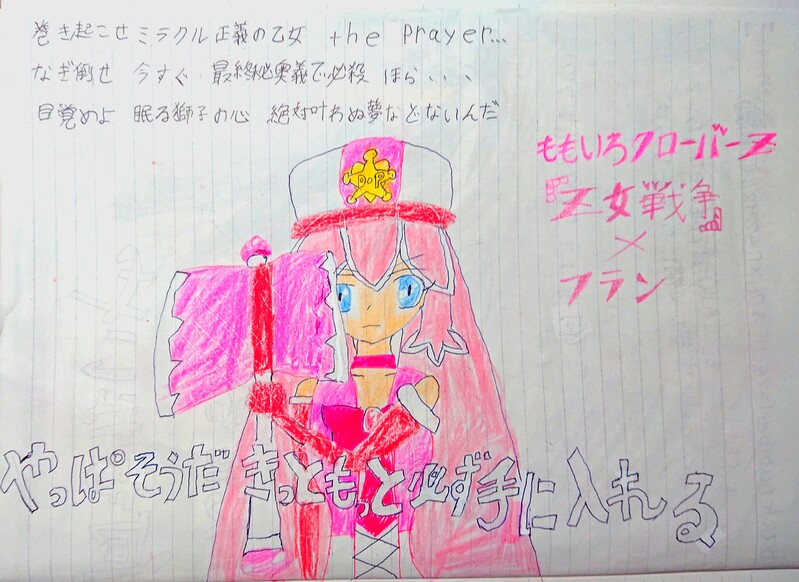 巻き起こせ ミラクル 正義の乙女 the prayer...
なぎ倒せ 今すぐ 最終秘奥義で必殺 ほら、、、
目覚めよ 眠る獅子の心 絶対叶わぬ夢などないんだ
ももいろクローバーZ
『Z女戦争』
×
フラン
やっぱそうだ きっともっと必ず手に入れる